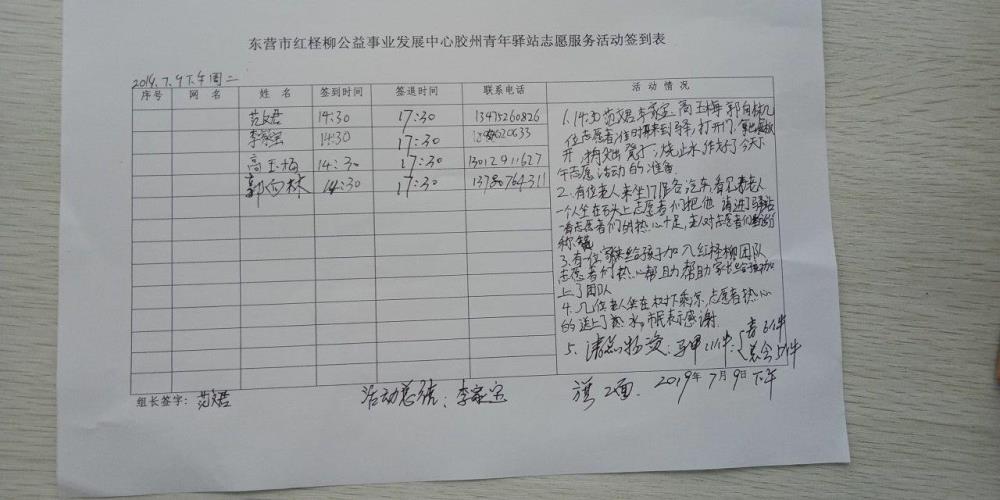 东营市红柽柳公益事业发展中心胶州青年驿站志愿服务活动签到表
2019.7.9下午周二
序号 网名 姓名 签到时间 签退时间 联系电话 活动情况
范文君 14:30 17:30 13475260826
李家宝 14:30 17:30
高玉梅 14:30 17:30 13012911627
郭向林 14:30 17:30 13780764311
1.14:30范文君李家宝高玉梅郭向林几
位志愿者准时来到驿站,打开门,
开,烧止水,作好了今天下
午志愿活动的准备
2.有位老人来坐17路公汽车,看见老人
一个人坐在石头上志愿者们把他请进了驿站
看志愿者们的热心十足,老人对志愿者们
称赞
3.有一位家长给孩子加入红柽柳团队
志愿者们热心帮助帮助家长给孩子加
上了团队
4.几位老人坐在树下乘凉,志愿者热心
的送上了热水,市民表示感谢.
5.清点物资:马甲111件:{青61件
总会51件
旗2面. 2019年7月9日下午
组长签字:范文君 活动总结:李家宝